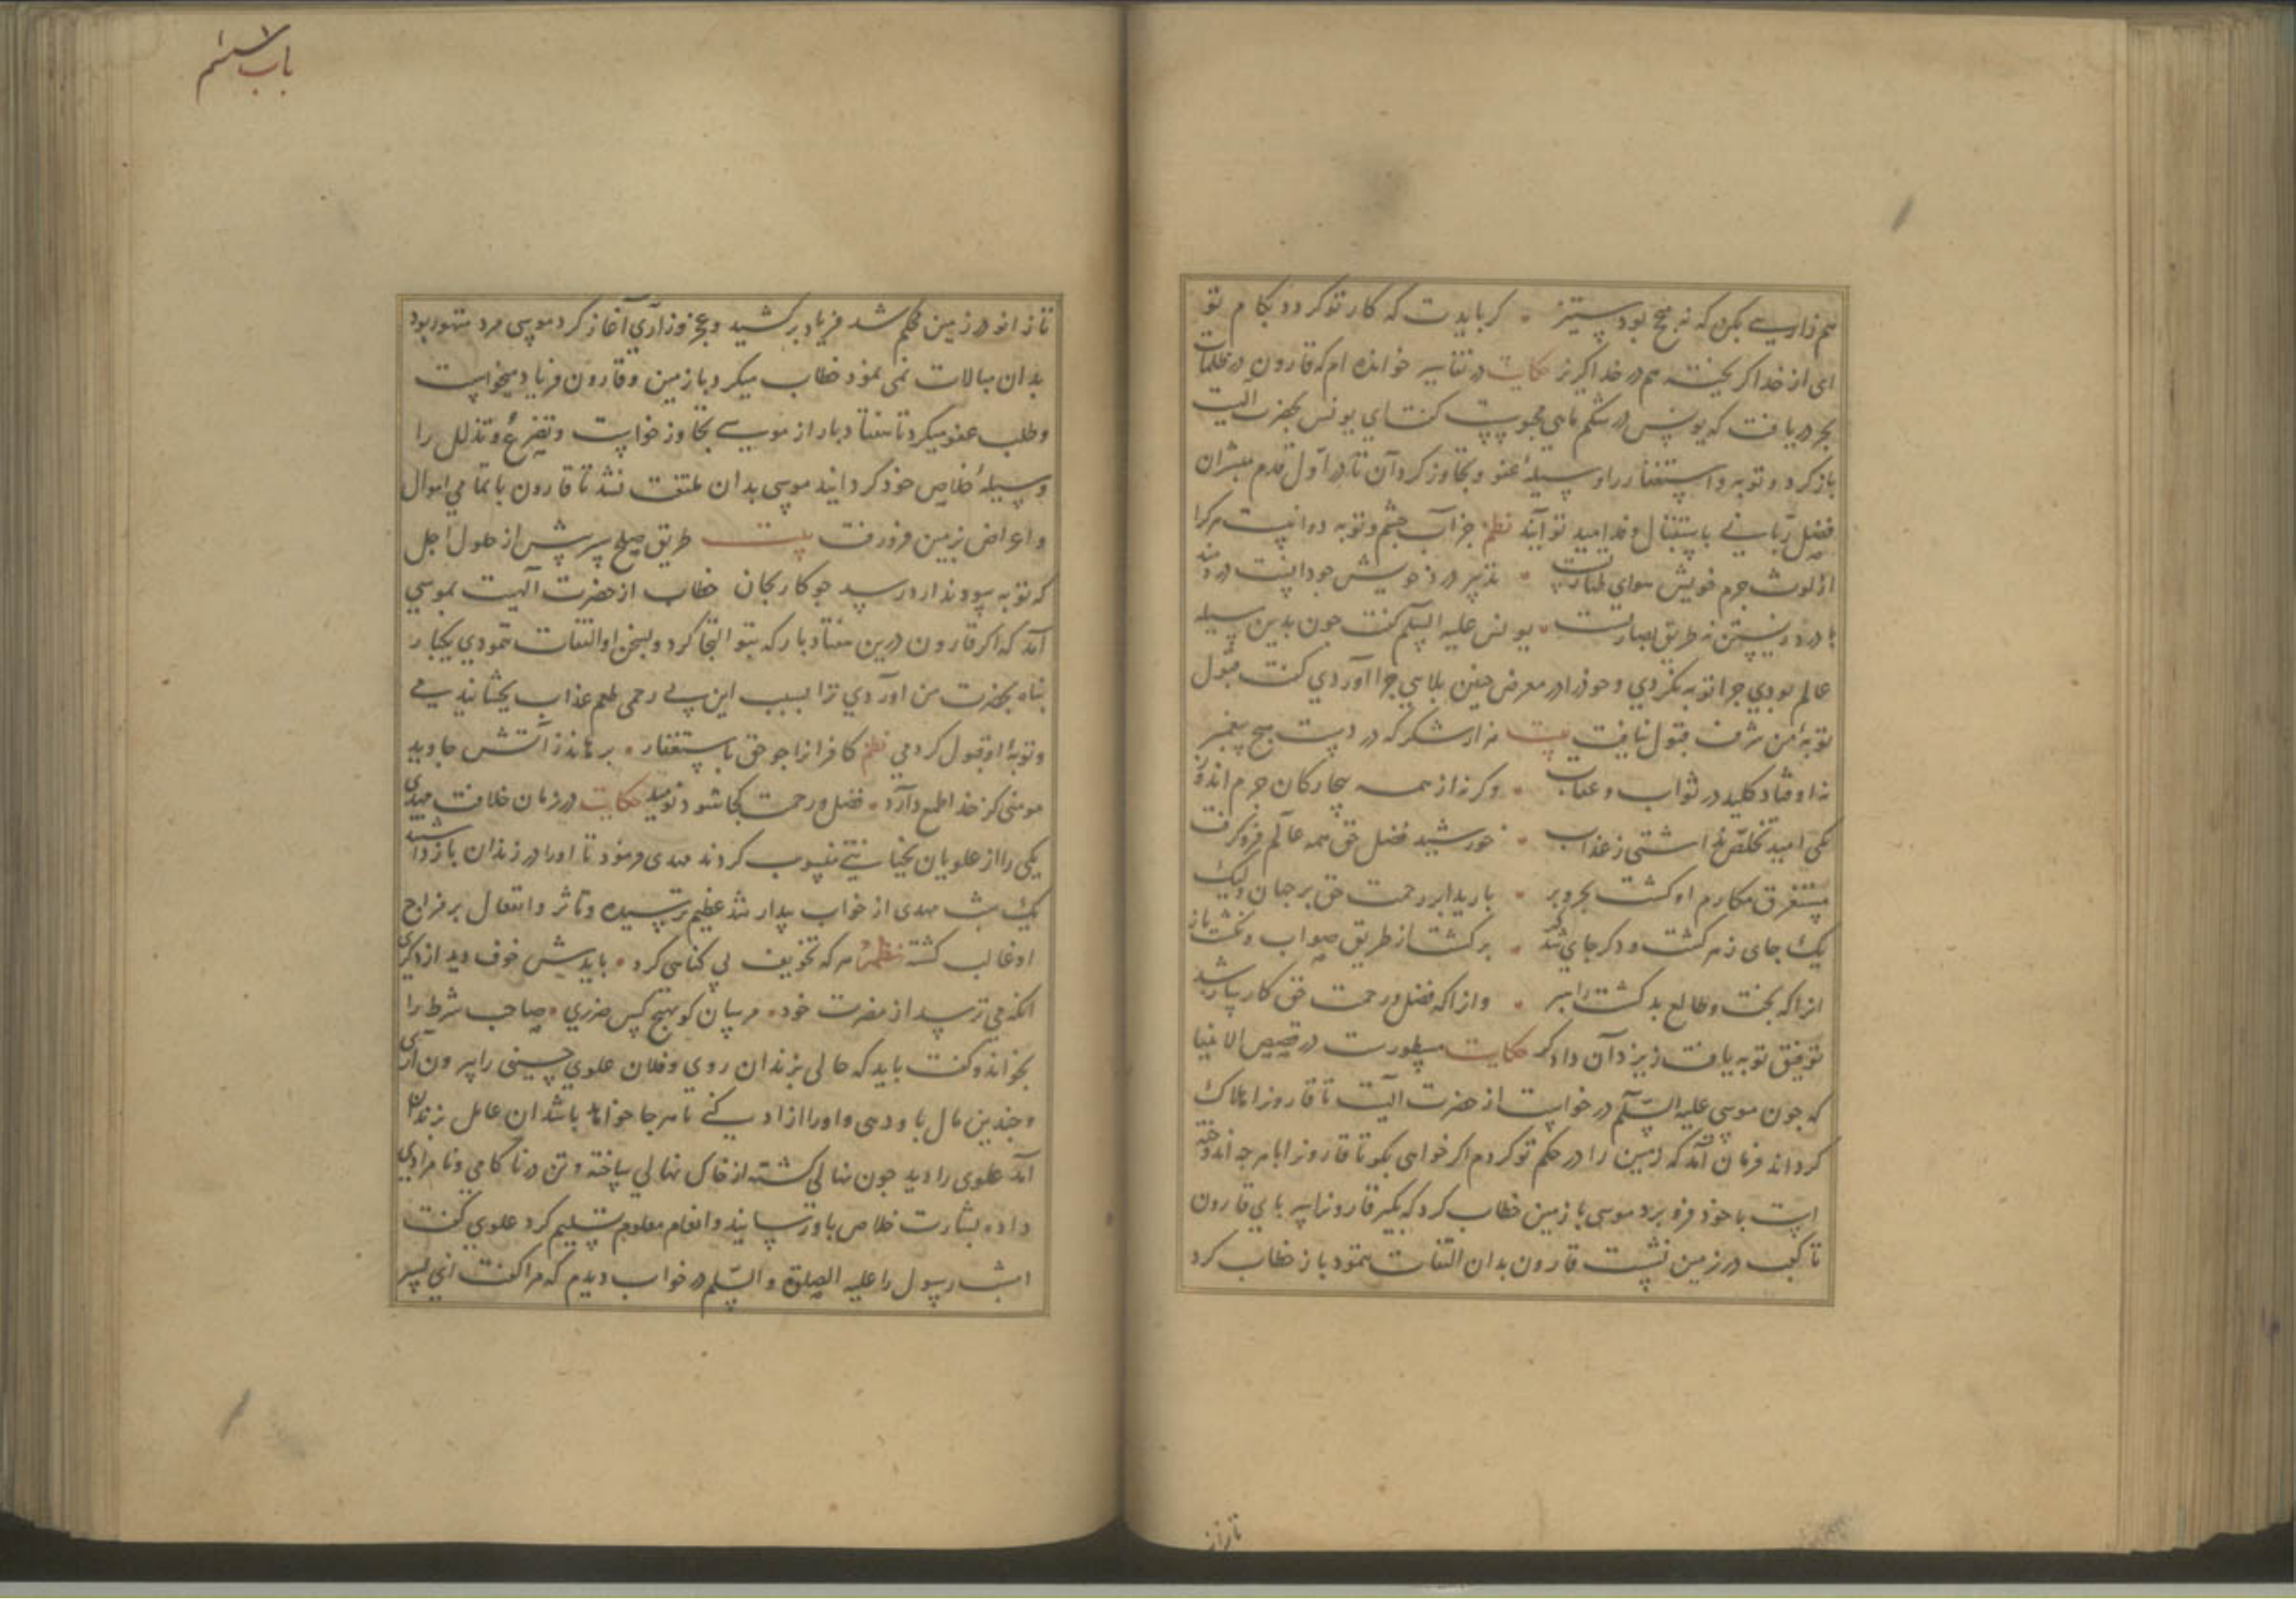 هم زاریی بکن که نه هیچ بود ستیز • کر بایدت که کار تو کردد بکام تو
ای از خدا کریخته هم در خدا کریز حکایت در تفاسیر خوانده ام که قارون در ظلمات
بحر دریافت که یونس در شکم ماهی محبوسست کفت ای یونس بحضرت الهیت
باز کرد و توبه و استغفار را وسیلهٔ عفو و تجاوز کردان تا در اول قدم مبشران
فضل ربانی باستقبال وفد امید تو آیند نظم جز آب چشم و توبه دوا نیست مر کرا
از لوث جرم خویش هوای طهارتست • تدبیر درد خویش جو دانست دردمند
با درد زیستن نه طریق بصارتست • یونس علیه السلم کفت جون بدین وسیله
عالم بودی جرا توبه نکردی و خود را در معرض جنین بلایی جرا آوردی کفت قبول
توبهٔ من شرف قبول نیافت بیت هزار شکر که در دست هیچ پیغمبر
نه اوفتاد کلید در ثواب و عقاب • وکرنه از همه بیچارکان جرم اندوز
یکی امید تخلص نداشتی ز عذاب • خورشید فضل حق همه عالم فرو کرفت
مستغرق مکارم او کشت بحر و بر • بارید ابر رحمت حق بر جهان ولیک
یک جای زهر کشت و دکر جای شد شکر • برکشتا از طریق صواب و نکشت باز
انرا که بخت و طالع بد کشت راهبر • وانرا که فضل و رحمت حق کارساز شد
توفیق توبه یافت ز یزدان دادکر حکایت مسطورست در قصص الانبیا
که جون موسی علیه السلم درخواست از حضرت الهیت تا قارونرا هلاک
کرداند فرمان آمد که زمین را در حکم تو کردم اکر خواهی بکو تا قارونرا با هرجه اندوخته
است با خود فرو برد موسی با زمین خطاب کرد که بکیر قارونرا پس پای قارون
تا کعب در زمین نشست قارون بدان التفات ننمود باز خطاب کرد
تا زانو
باب ششم
تا زانو در زمین محکم شد فریاد برکشید و عجز و زاری آغاز کرد موسی مرد متهور بود
بدان مبالات نمی نمود خطاب میکرد با زمین و قارون فریاد میخواست
و طلب عفو میکرد تا هفتاد بار از موسی تجاوز خواست و تضرع و تذلل را
وسیلهٔ خلاص خود کردانید موسی بدان ملتفت نشد تا قارون با تمامی اموال
و اعراض بزمین فرو رفت بیت طریق صلح سپر پیش از حلول اجل
که توبه سود ندارد رسد جو کار بجان خطاب از حضرت الهیت بموسی
آمد که اکر قارون درین هفتاد بار که بتو التجا کرد و بسخن او التفات ننمودی یکبار
پناه بحضرت من آوردی ترا بسبب این بی رحمی طعم عذاب بچشانیدیمی
و توبهٔ او قبول کردمی نظم کافرانرا جو حق باستغفار • برهاند ز آتش جاوید
مومنی کز خدا طمع دارد • فضل و رحمت کجا شود نومید حکایت در زمان خلافت مهدی
یکی را از علویان بخیانتی منسوب کردند مهدی فرمود تا او را در زندان بازداشتند
یک شب مهدی از خواب بیدار شد عظیم ترسیده و تاثر و انفعال بر مزاج
او غالب کشته نظم هر که تخویف بی کناهی کرد • بایدش خوف دید از دکری
انکه می ترسد از مضرت خود • مرسان کو بهیچ کس ضرری • صاحب شرط را
بخواند و کفت باید که حالی بزندان روی و فلان علوی حسینی را بیرون آری
و جندین مال باو دهی و او را ازاد کنی تا هر جا خواهد باشد ان عامل بزندان
آمد علوی را دید جون نهالی کشته از خاک نهالی ساخته و تن در ناکامی و نامرادی
داده بشارت خلاص باو رسانید و انعام معلوم تسلیم کرد علوی کفت
امشب رسول را علیه الصلوة و السلم در خواب دیدم که مرا کفت ای پسر